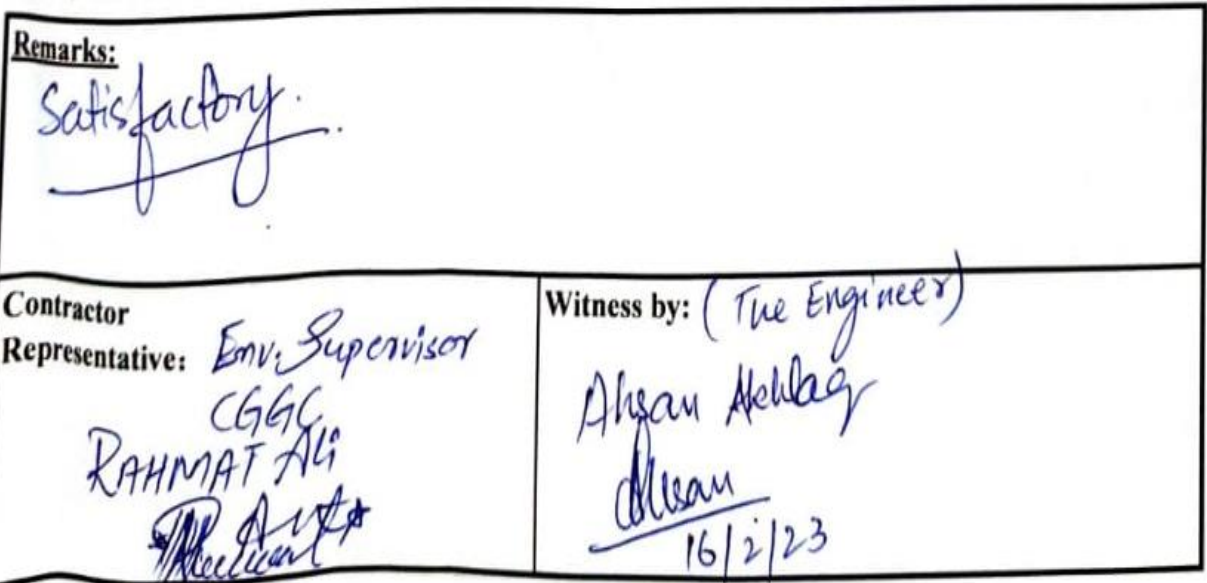 Remarks:
Satisfactory.
Contractor
Representative: Env. Supervisor
CGGC
RAHMAT Ali
Witness by: (The Engineer)
Ahsan Akhlaq
Ahsan
16/2/23